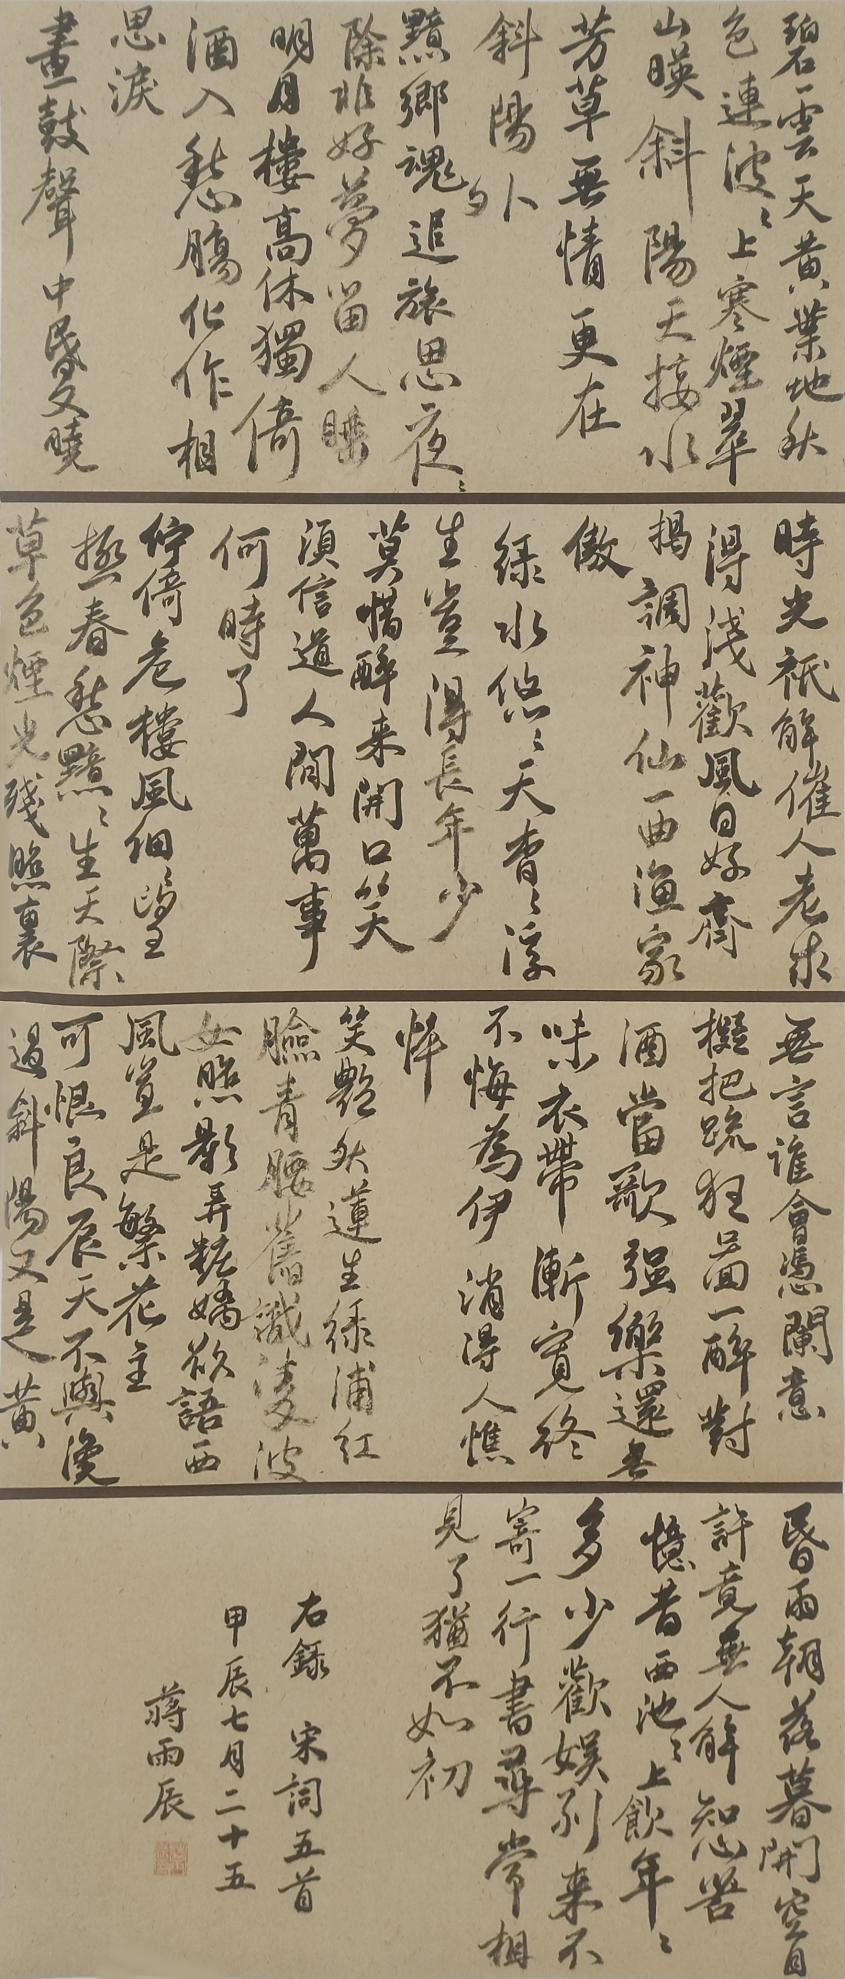 碧雲天黄葉地秋
色連波波上寒煙翠
山暎斜陽天接水
芳草無情更在
斜陽外
黯鄉魂追旅思夜夜
除非好夢留人睡
明月樓高休獨倚
酒入愁腸化作相
思淚
畫鼓聲中昏又曉
時光祇解催人老求
得淺歡風日好齊
揭調神仙一曲漁家
傲
绿水悠悠天杳杳浮
生豈得長年少
莫惜醉来開口笑
須信道人間萬事
何時了
佇倚危樓風细细望
極春愁黯黯生天際
草色煙光殘照裏
無言誰會憑闌意
擬把疏狂圖一醉對
酒當歌强樂還無
味衣帶漸寬終
不悔為伊消得人憔
悴
笑艷秋蓮生绿浦红
臉青腰舊識凌波
女照影弄粧嬌欲語西
風豈是繁花主
可恨良辰天不與纔
過斜陽又是黄
昏雨朝落暮開空自
許竟無人解知心苦
憶昔西池池上飲年年
多少歡娱别来不
寄一行書尋常相
見了猶不如初
右錄 宋詞五首
甲辰七月二十五
蔣雨辰